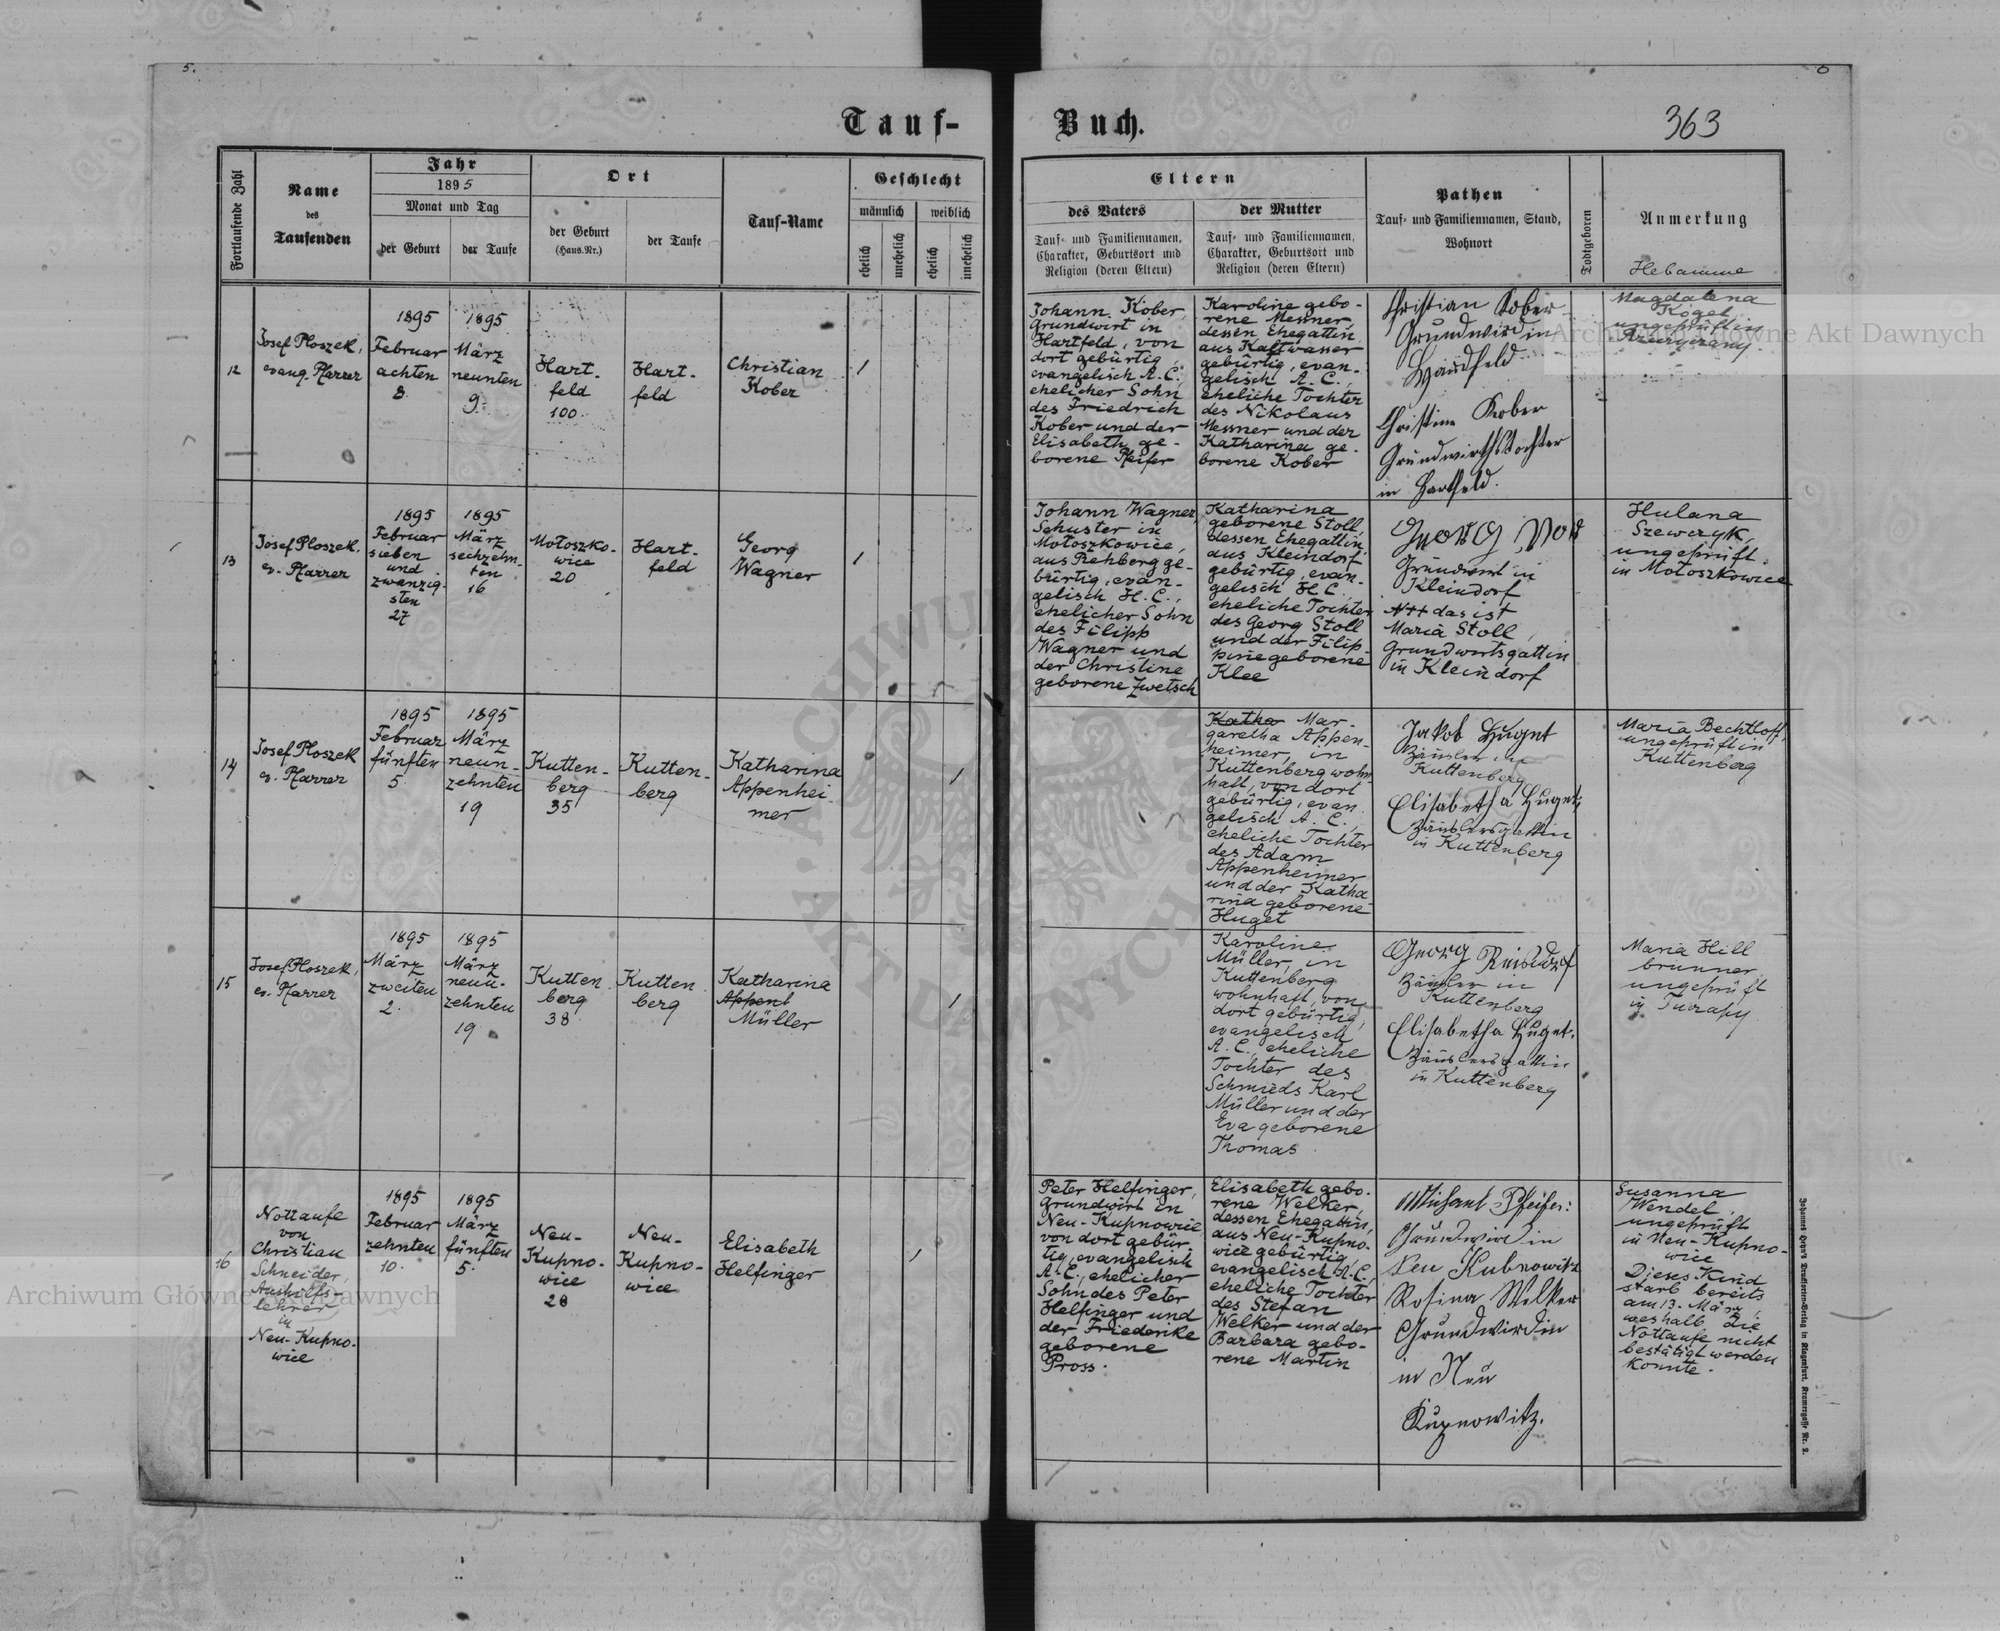 5.
6
Tauf-
Buch.
363
Fortlaufende Zahl
Name
des
Taufenden
Jahr
1895
Monat und Tag
der Geburt
der Taufe
Ort
der Geburt
(Haus-Nr.)
der Taufe
Tauf-Name
Geschlecht
männlich
weiblich
ehelich
unehelich
ehelich
unehelich
Eltern
des Vaters
Tauf- und Familiennamen,
Charakter, Geburtsort und
Religion (deren Eltern)
der Mutter
Tauf- und Familiennamen,
Charakter, Geburtsort und
Religion (deren Eltern)
Pathen
Tauf- und Familiennamen, Stand,
Wohnort
Todtgeboren
Anmerkung
Hebamme
12
Josef Ploszek,
evang. Pfarrer
1895
Februar
achten
8.
1895
März
neunten
9.
Hart-
feld
100
Hart-
feld
Christian
Kober
1
Johann Kober,
Grundwirt in
Hartfeld, von
dort gebürtig,
evangelisch A.C.,
ehelicher Sohn
des Friedrich
Kober und der
Elisabeth ge-
borene Pfeifer
Karoline gebo-
rene Messner
dessen Ehegattin,
aus Kaltwasser
gebürtig, evan-
gelisch A.C.,
eheliche Tochter
des Nikolaus
Messner und der
Katharina ge-
borene Kober
Christian Kober
Grundwird in
Hardfeld
Christine Kober
Grundwirthstochter
in Hartfeld.
Magdalena
Kogel
ungeprüft in
13
Josef Ploszek,
ev. Pfarrer
1895
Februar
sieben
und
zwanzig-
sten
27
1895
März
sechzehn-
ten
16
Motoszko-
wice
20
Hart-
feld
Georg
Wagner
1
Johann Wagner,
Schuster in
Motoszkowice,
aus Rehberg ge-
bürtig, evan-
gelisch H.C.,
ehelicher Sohn
des Filipp
Wagner und
der Christine
geborene Zwetsch
Katharina
geborene Stoll,
dessen Ehegattin,
aus Kleindorf
gebürtig, evan-
gelisch H.C.,
eheliche Tochter
des Georg Stoll
und der Filip-
pine geborene
Klee
Georg
Grundwirt in
Kleindorf
+++ das ist
Maria Stoll,
Grundwirtsgattin
in Kleindorf
Hulana
Szewczyk,
ungeprüft
in Motoszkowice
14
Josef Ploszek
ev. Pfarrer
1895
Februar
fünften
5
1895
März
neun-
zehnten
19
Kutten-
berg
35
Kutten-
berg
Katharina
Appenhei-
mer
1
Katha Mar-
garetha Appen-
heimer, in
Kuttenberg wohn
haft, von dort
gebürtig, evan
gelisch A.C.,
eheliche Tochter
des Adam
Appenheimer
und der Katha
rina geborene
Huget
Jakob Huget
Häusler in
Kuttenberg
Elisabetha Huget,
Häuslersgattin
in Kuttenberg
Maria Bechtloff,
ungeprüft in
Kuttenberg
15
Josef Ploszek,
ev. Pfarrer
1895
März
zweiten
2.
1895
März
neun-
zehnten
19
Kutten
berg
38
Kutten
berg
Katharina
Appenh
Müller
1
Karoline
Müller, in
Kuttenberg
wohnhaft, von
dort gebürtig,
evangelisch
A.C., eheliche
Tochter des
Schmieds Karl
Müller und der
Eva geborene
Thomas
Georg Reisdorf
Häusler in
Kuttenberg
Elisabetha Huget,
Häuslersgattin
in Kuttenberg
Maria Hill
brunner
ungeprüft
in
16
Nottaufe
von
Christian
Schneider,
Aushilfs-
lehrer
in
Neu-Kupno-
wice
1895
Februar
zehnten
10.
1895
März
fünften
5.
Neu-
Kupno-
wice
28
Neu-
Kupno-
wice
Elisabeth
Helfinger
1
Peter Helfinger,
Grundwirt in
Neu-Kupnowice
von dort gebür
tig, evangelisch
A.C., ehelicher
Sohn des Peter
Helfinger und
der Friederike
geborene
Pross.
Elisabeth gebo-
rene Welker,
dessen Ehegattin,
aus Neu-Kupno-
wice gebürtig
evangelisch A.C.
eheliche Tochter
des Stefan
Welker und der
Barbara gebo-
rene Martin
Michael Pfeifer:
Grundwird in
Neu Kubnowitz
Rosina Welker
Grundwirdin
in Neu
Kupnowitz.
Susanna
Wendel,
ungeprüft
in Neu-Kupno-
wice
Dieses Kind
starb bereits
am 13. März,
weshalb die
Nottaufe nicht
bestätigt werden
konnte.
Archiwum Główne Akt Dawnych
Archiwum Główne Akt Dawnych